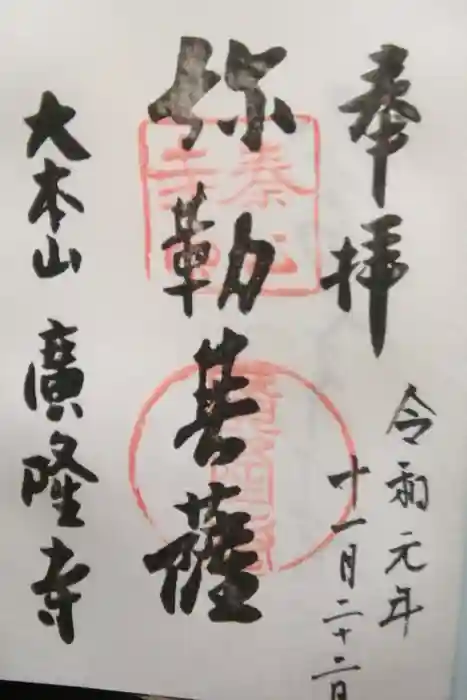 奉拝
令和元年
十一月二十二日
弥勒菩薩
大本山 廣隆寺